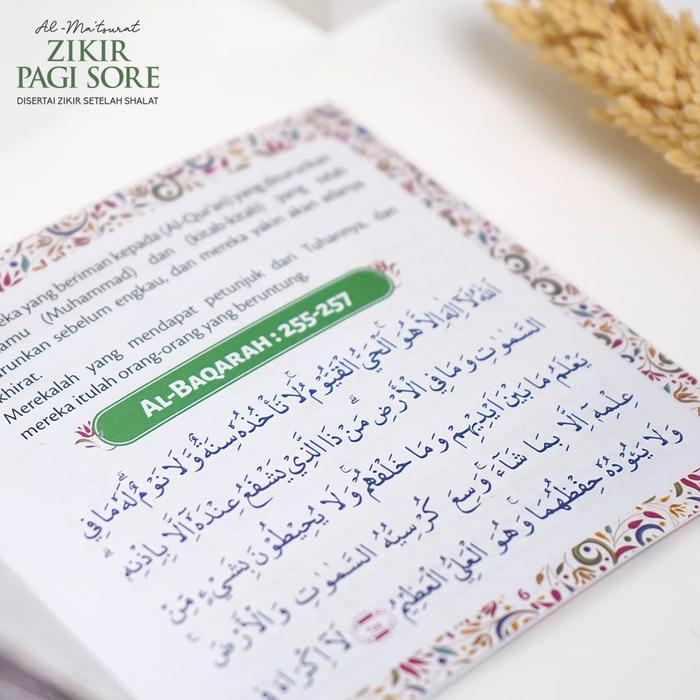 Al-Ma'tsurat
ZIKIR
PAGI SORE
DISERTAI ZIKIR SETELAH SHALAT
eka yang beriman kepada (Al-Qur'an) yang diturunkan
amu (Muhammad) dan (kitab-kitab) yang telah
urunkan sebelum engkau, dan mereka yakin akan adanya
khirat.
Merekalah yang mendapat petunjuk dari Tuhannya, dan
mereka itulah orang-orang yang beruntung.
AL-BAQARAH : 255-257
اَللّٰهُ لَآ اِلٰهَ اِلَّا هُوَ اَلْحَيُّ الْقَيُّوْمُ ەۚ لَا تَأْخُذُهٗ سِنَةٌ وَّلَا نَوْمٌۗ لَهٗ مَا فِى
السَّمٰوٰتِ وَمَا فِى الْاَرْضِۗ مَنْ ذَا الَّذِيْ يَشْفَعُ عِنْدَهٗٓ اِلَّا بِاِذْنِهٖۗ
يَعْلَمُ مَا بَيْنَ اَيْدِيْهِمْ وَمَا خَلْفَهُمْۚ وَلَا يُحِيْطُوْنَ بِشَيْءٍ مِّنْ
عِلْمِهٖٓ اِلَّا بِمَا شَاۤءَۚ وَسِعَ كُرْسِيُّهُ السَّمٰوٰتِ وَالْاَرْضَۚ
وَلَا يَـُٔوْدُهٗ حِفْظُهُمَاۚ وَهُوَ الْعَلِيُّ الْعَظِيْمُ لَآ اِكْرَاهَ فِى
9